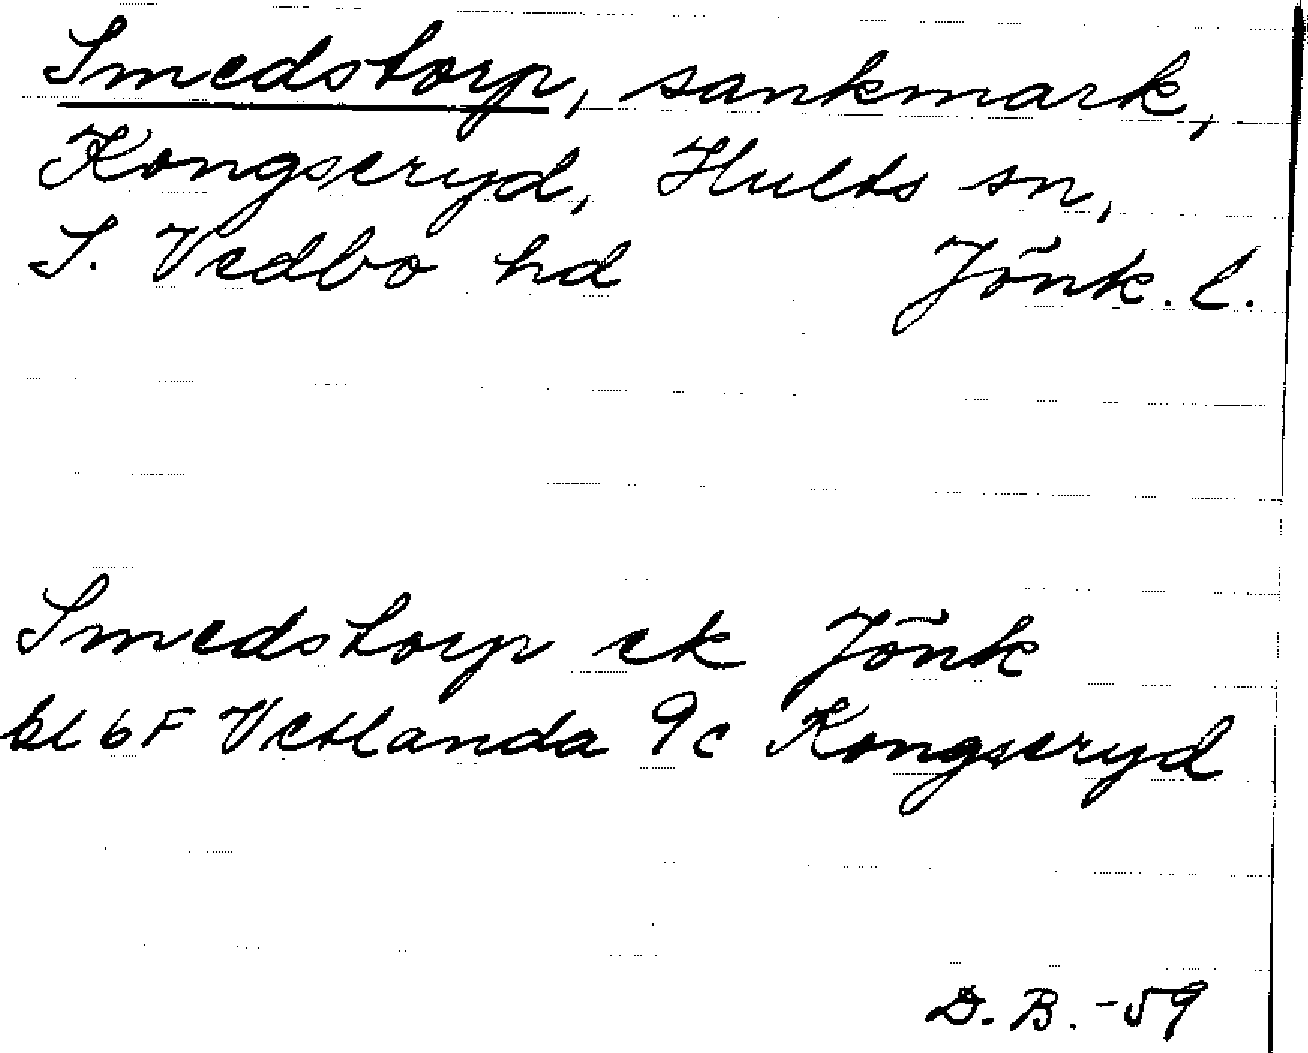 Smedstorp, sankmark,
Kongseryd, Hults sn,
S. Vedbo hd Jönk. l.
Smedstorp ek Jönk
bl 6F Vetlanda 9c Kongseryd
D. B. -59